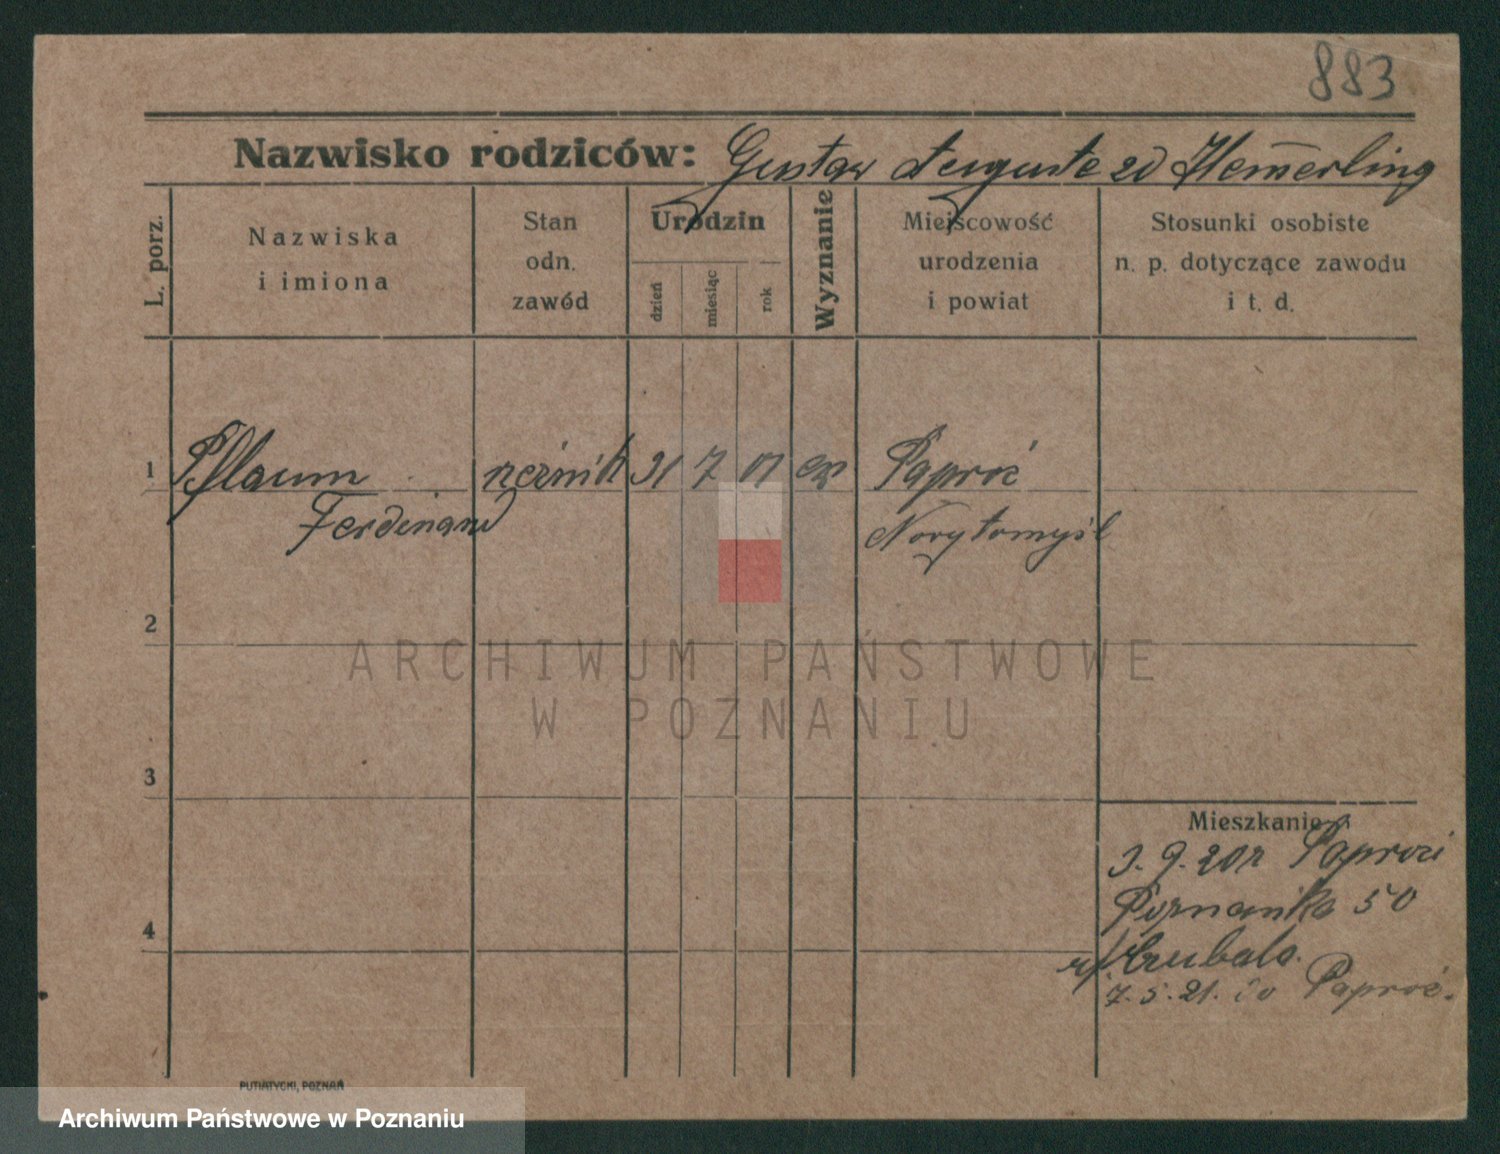 883
Nazwisko rodziców: Gustav Auguste zd Hemerling
L. porz.
Nazwiska
i imiona
Stan
odn.
zawód
Urodzin
dzień
miesiąc
rok
Wyznanie
Miejscowość
urodzenia
i powiat
Stosunki osobiste
n. p. dotyczące zawodu
i t. d.
1 Pflaum rzeźnik 31 7 01 ew Paproć
Ferdinand Nowytomyśl
2
3
4
Mieszkanie
3. 9. 20 z Paproci
Poznańska 50
u/
7. 5. 21. do Paproć.
PUTIATYCKI, POZNAŃ
ARCHIWUM PAŃSTWOWE
W POZNANIU
Archiwum Państwowe w Poznaniu